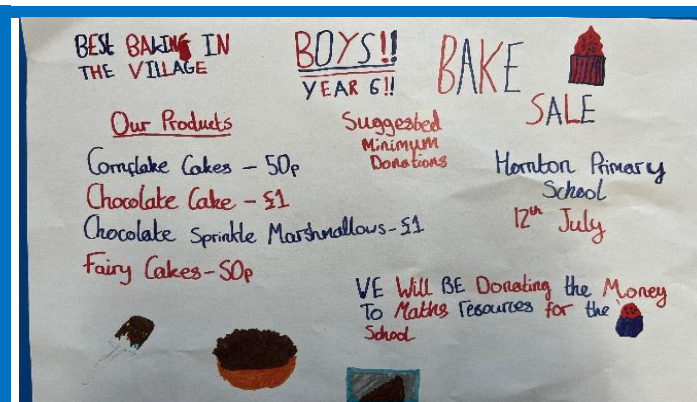 BEST BAKING IN
THE VILLAGE
BOYS!!
YEAR 6!!
BAKE
SALE
Our Products
Cornflake Cakes - 50p
Chocolate Cake - £1
Chocolate Sprinkle Marshmallows - £1
Fairy Cakes - 50p
Suggested
Minimum
Donations
Hornton Primary
School
12th July
WE Will BE Donating the Money
To Maths resources for the
School